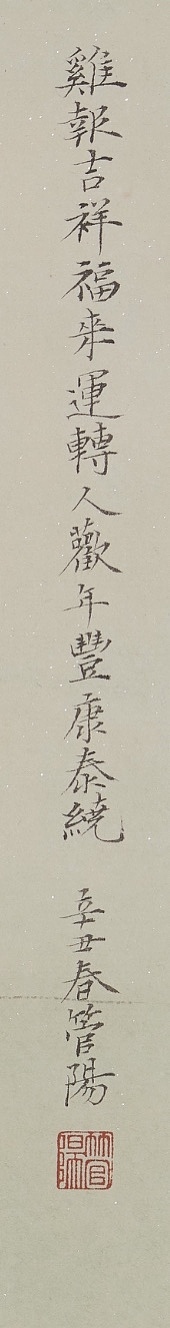 雞報吉祥福来運轉人歡年豐康泰繞 辛丑春管陽
管陽